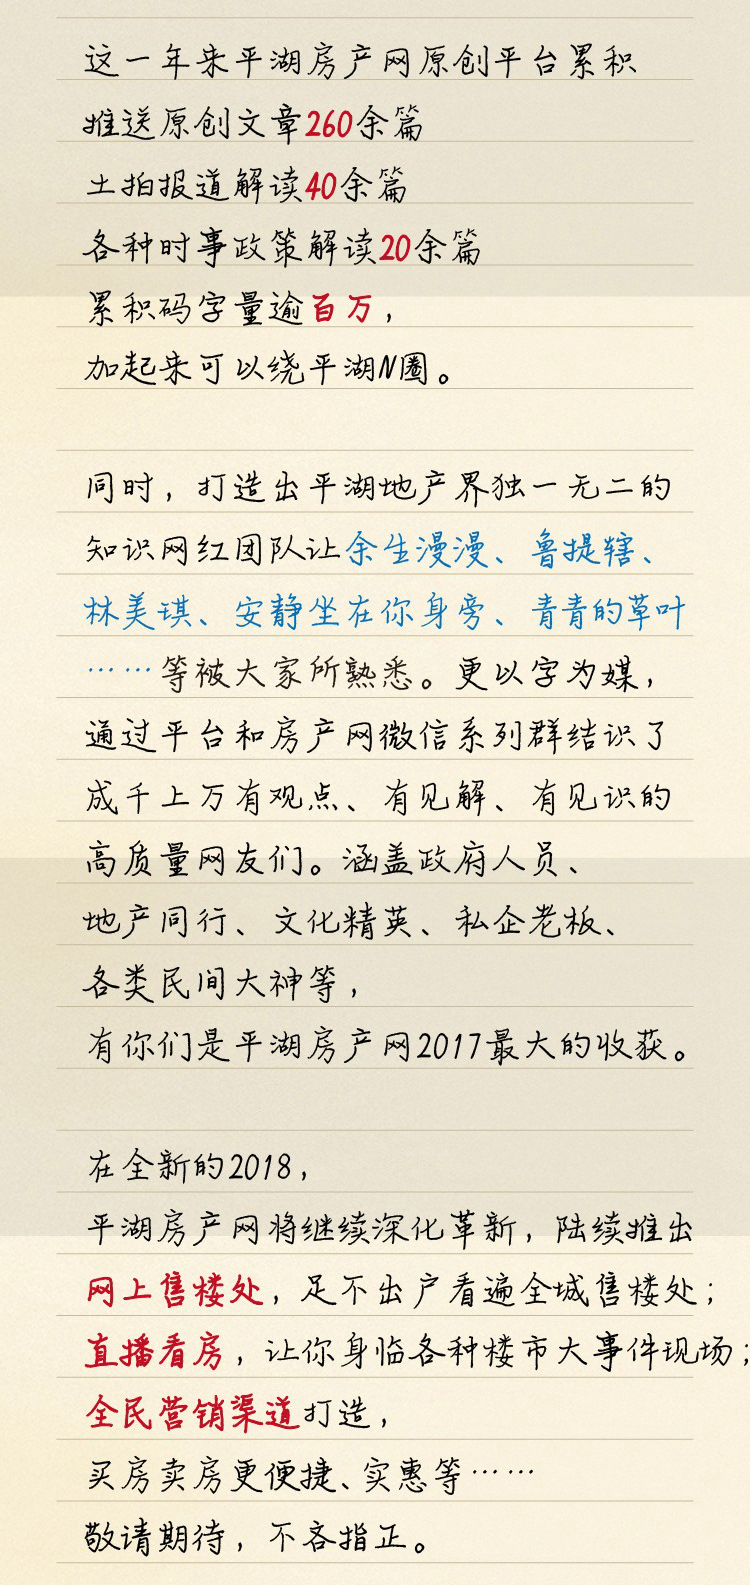 这一年来平湖房产网原创平台累积
推送原创文章260余篇
土拍报道解读40余篇
各种时事政策解读20余篇
累积码字量逾百万，
加起来可以绕平湖N圈。
同时，打造出平湖地产界独一无二的
知识网红团队让余生漫漫、鲁提辖、
林美琪、安静坐在你身旁、青青的草叶
……等被大家所熟悉。更以字为媒，
通过平台和房产网微信系列群结识了
成千上万有观点、有见解、有见识的
高质量网友们。涵盖政府人员、
地产同行、文化精英、私企老板、
各类民间大神等，
有你们是平湖房产网2017最大的收获。
在全新的2018，
平湖房产网将继续深化革新，陆续推出
网上售楼处，足不出户看遍全城售楼处；
直播看房，让你身临各种楼市大事件现场；
全民营销渠道打造，
买房卖房更便捷、实惠等……
敬请期待，不吝指正。